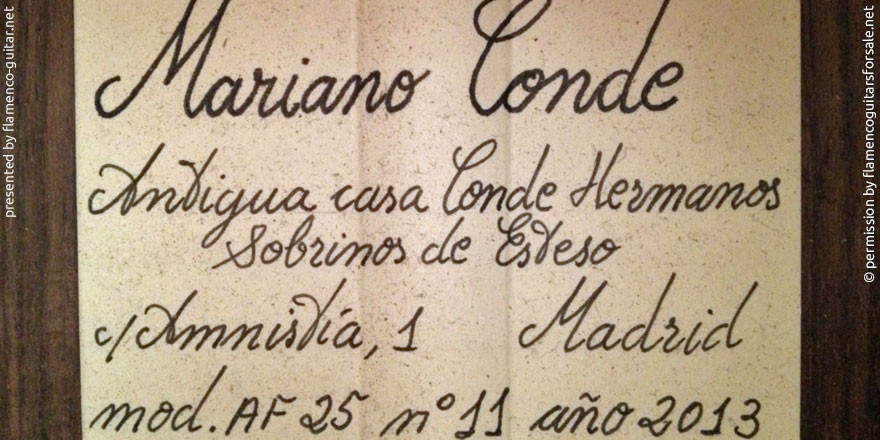 Mariano Conde
Antigua casa Conde Hermanos
Sobrinos de Esteso
c/Amnistía, 1 Madrid
mod. AF 25 nº 11 año 2013
presented by flamenco-guitar.net
© permission by flamencoguitarsforsale.net